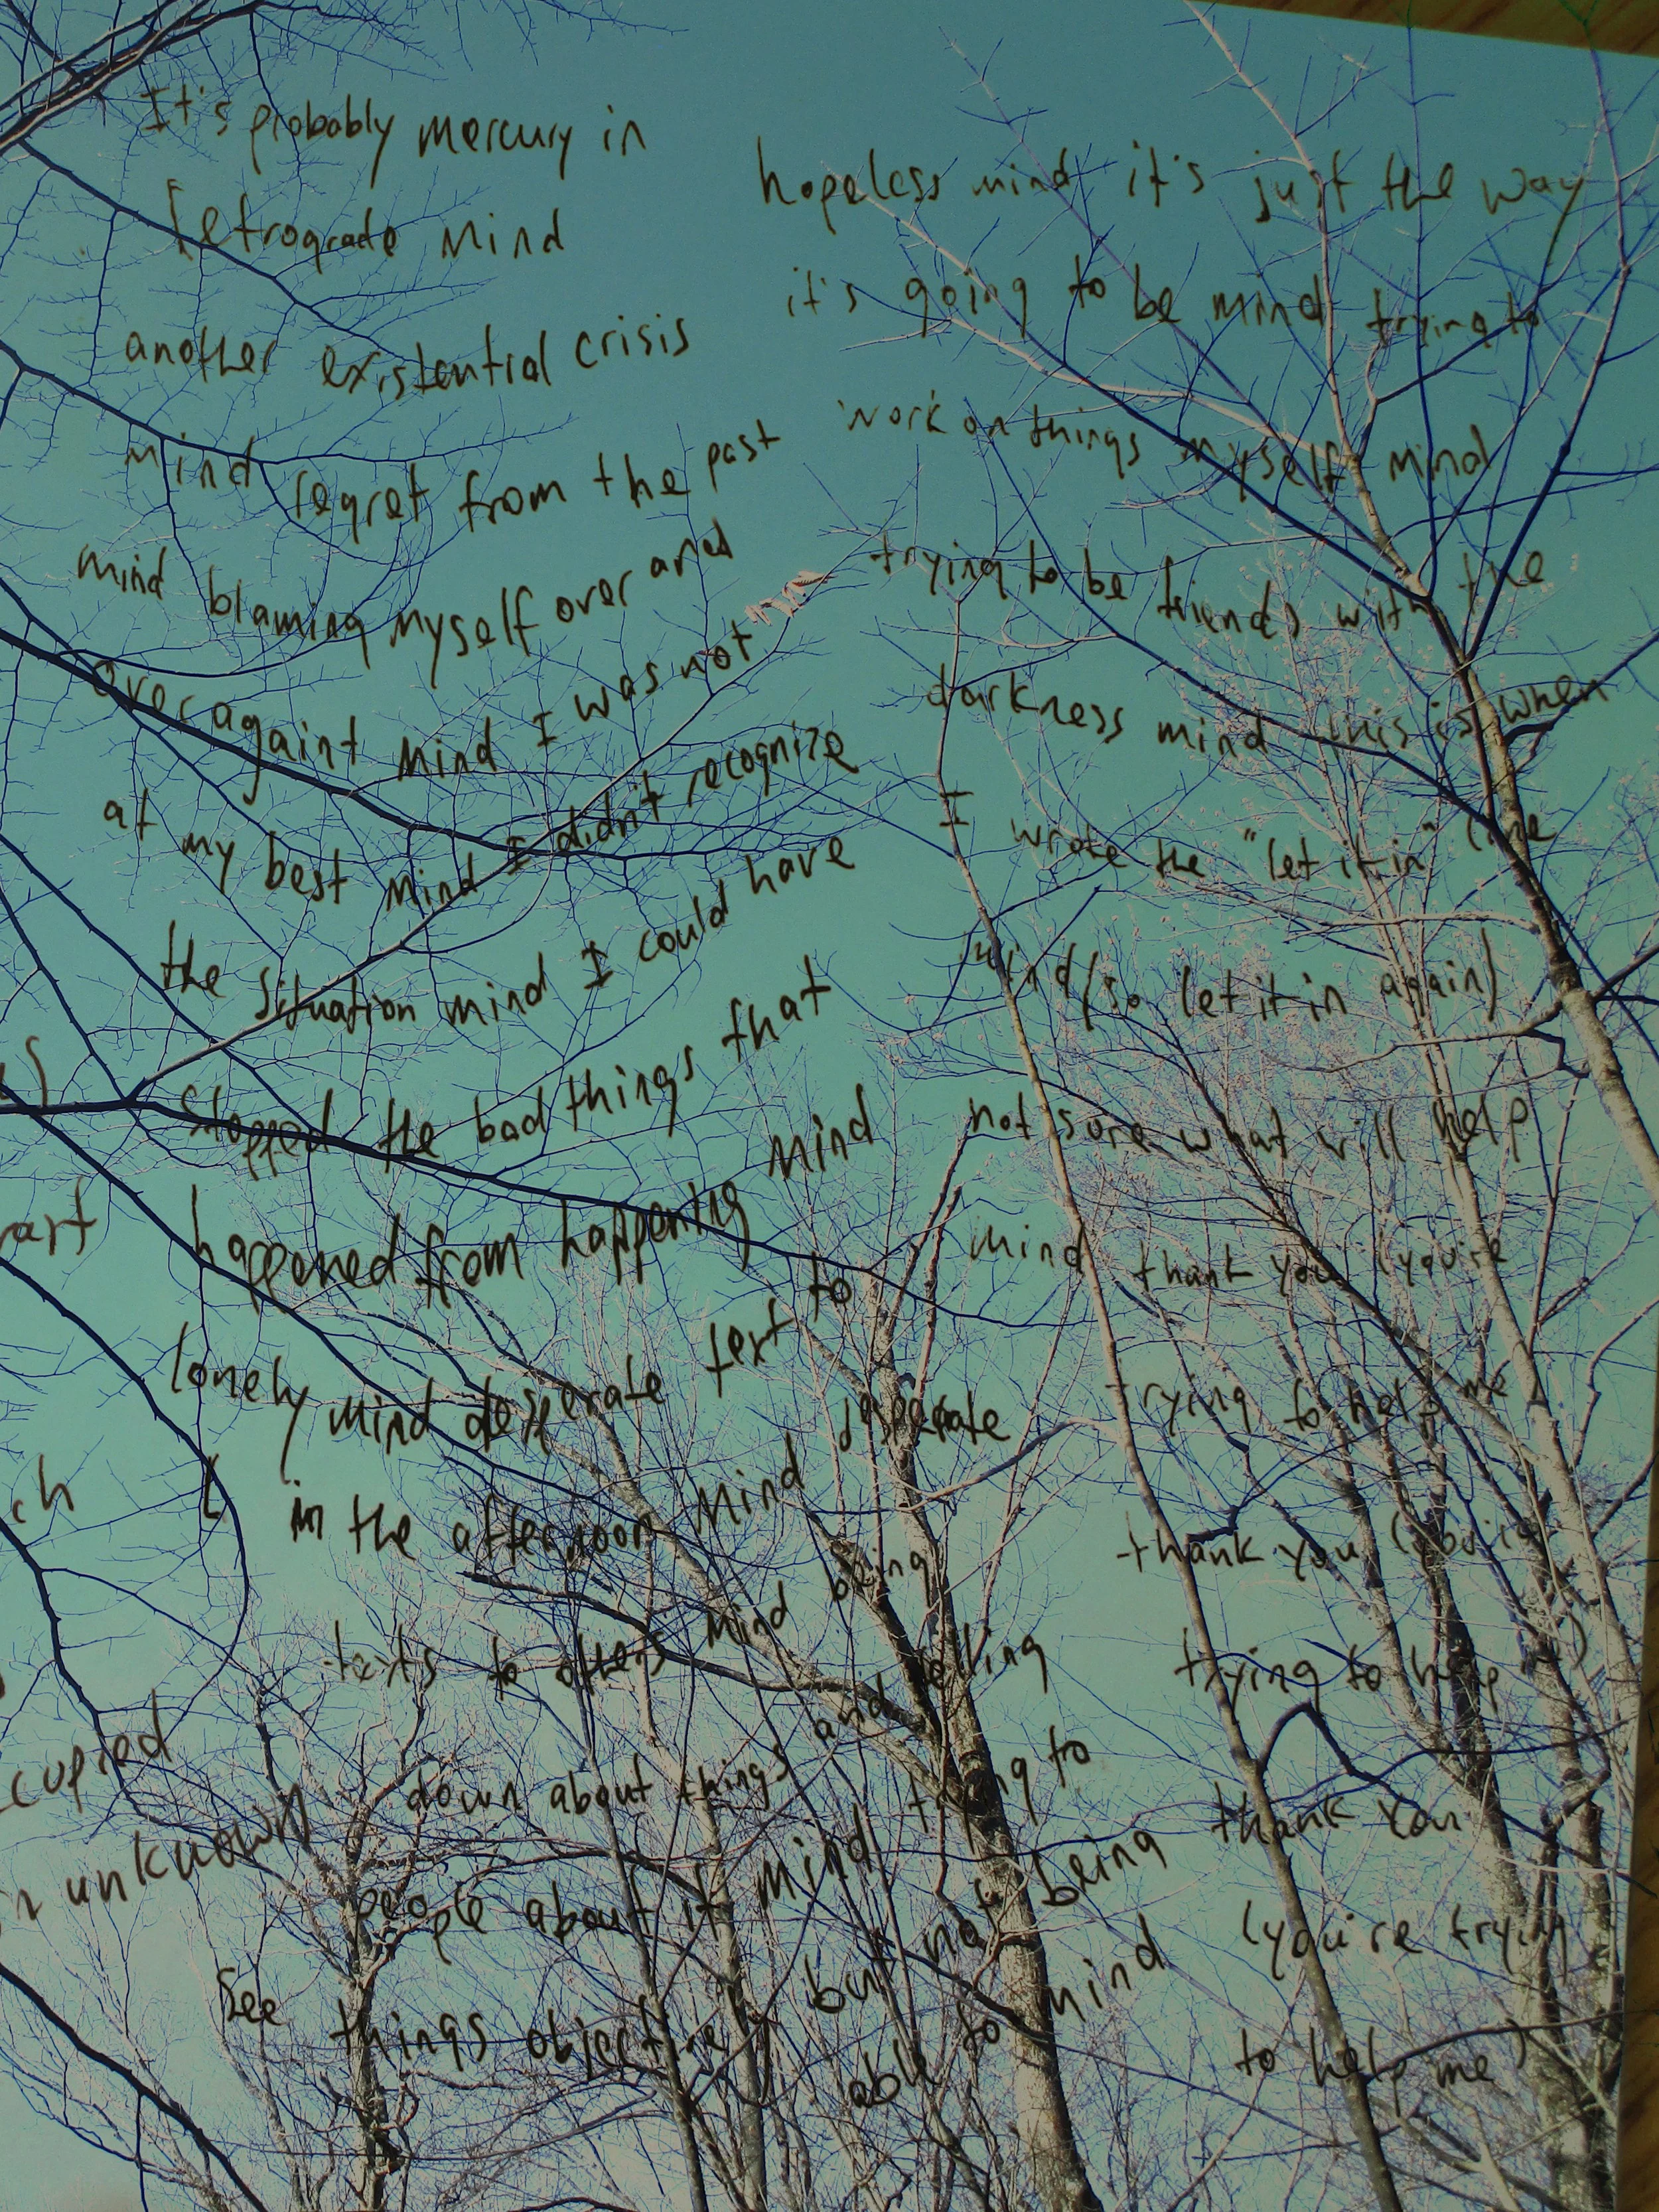 It's probably mercury in
retrograde mind
another existential crisis
mind regret from the past
mind blaming myself over and
over againt mind I was not
at my best mind I didn't recognize
the situation mind I could have
stopped the bad things that
happened from happening mind
lonely mind desperate text to
L in the afternoon mind desperate
texts to others mind being
down about things and telling
people about it mind trying to
see things objectively but not being
able to mind
hopeless mind it's just the way
it's going to be mind trying to
work on things myself mind
trying to be friends with the
darkness mind this is when
I wrote the "let it in" line
mind (so let it in again)
not sure what will help
mind thank you (you're
trying to help me
thank you (you're
trying to help me)
thank you
(you're trying
to help me)
rart
ch
cupied
unknown